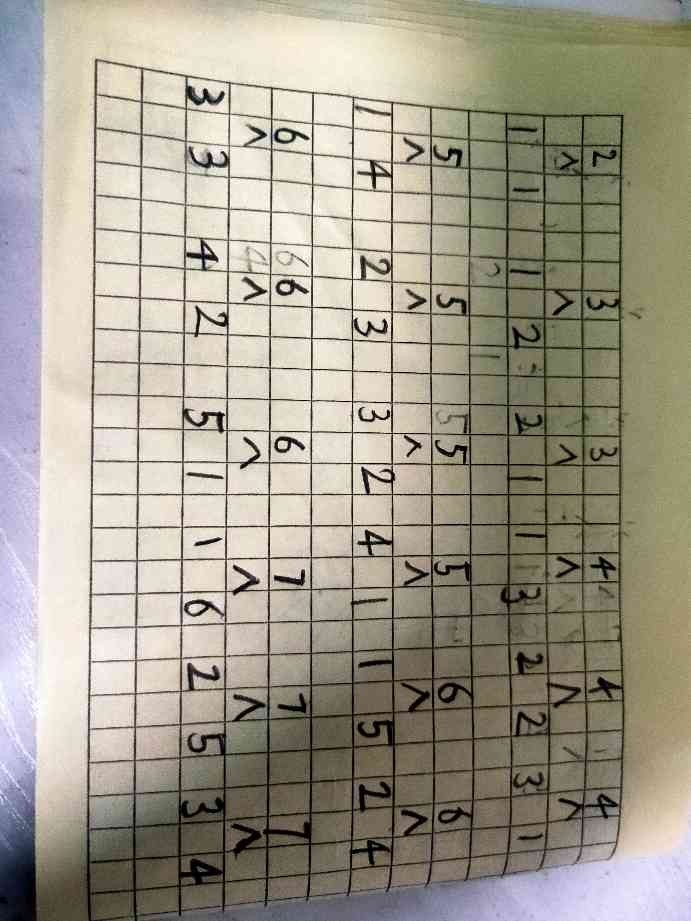 2 3 3 4 4 4
∧ ∧ ∧ ∧ ∧ ∧
1 1 1 2 2 1 1 3 2 2 3 1
5 5 5 5 6 6
∧ ∧ ∧ ∧ ∧ ∧
1 4 2 3 3 2 4 1 1 5 2 4
6 6 6 7 7 7
∧ ∧ ∧ ∧ ∧ ∧
3 3 4 2 5 1 1 6 2 5 3 4